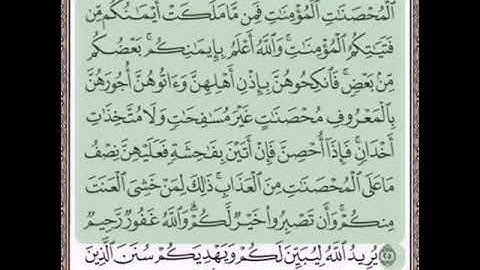 ٱلْمُحْصَنَٰتِ ٱلْمُؤْمِنَٰتِ فَمِن مَّا مَلَكَتْ أَيْمَٰنُكُم مِّن
فَتَيَٰتِكُمُ ٱلْمُؤْمِنَٰتِ ۚ وَٱللَّهُ أَعْلَمُ بِإِيمَٰنِكُم ۚ بَعْضُكُم
مِّنۢ بَعْضٍ ۚ فَٱنكِحُوهُنَّ بِإِذْنِ أَهْلِهِنَّ وَءَاتُوهُنَّ أُجُورَهُنَّ
بِٱلْمَعْرُوفِ مُحْصَنَٰتٍ غَيْرَ مُسَٰفِحَٰتٍ وَلَا مُتَّخِذَٰتِ
أَخْدَانٍ ۚ فَإِذَآ أُحْصِنَّ فَإِنْ أَتَيْنَ بِفَٰحِشَةٍ فَعَلَيْهِنَّ نِصْفُ
مَا عَلَى ٱلْمُحْصَنَٰتِ مِنَ ٱلْعَذَابِ ۚ ذَٰلِكَ لِمَنْ خَشِىَ ٱلْعَنَتَ
مِنكُمْ ۚ وَأَن تَصْبِرُوا۟ خَيْرٌ لَّكُمْ ۗ وَٱللَّهُ غَفُورٌ رَّحِيمٌ
٢٥ يُرِيدُ ٱللَّهُ لِيُبَيِّنَ لَكُمْ وَيَهْدِيَكُمْ سُنَنَ ٱلَّذِينَ